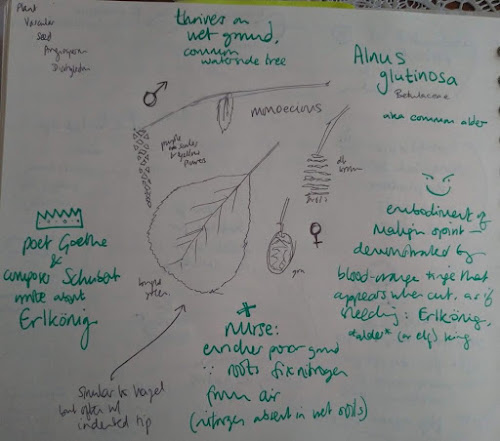 Plant
Vascular
Seed
Angiosperm
thrives on
wet ground.
common
waterside tree
Alnus
glutinosa
Betulaceae
aka common alder
monoecious
purple
& yellow
♂
♀
grn
poet Goethe
&
composer Schubert
write about
Erlkönig
embodiment of
malign spirit —
demonstrated by
blood-orange tinge that
appears when cut, as if
bleeding: Erlkönig,
*alder* (or elf) king
nurse:
enriches poor grnd
∵ roots fix nitrogen
from air
(nitrogen absent in wet soils)
similar to hazel
but often w/
indented tip